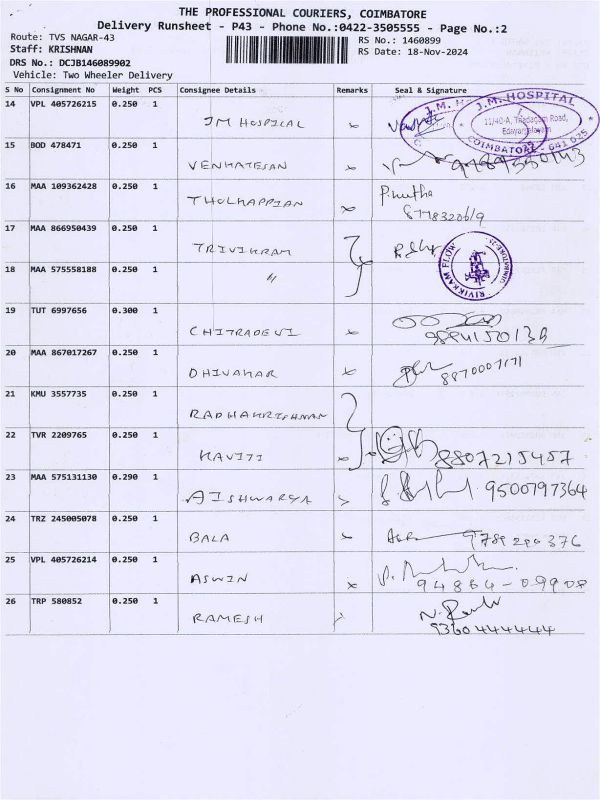 THE PROFESSIONAL COURIERS, COIMBATORE
Delivery Runsheet - P43 - Phone No.:0422-3505555 - Page No.:2
Route: TVS NAGAR-43
RS No.: 1460899
Staff: KRISHNAN
RS Date: 18-Nov-2024
DRS No.: DCJB146089902
Vehicle: Two Wheeler Delivery
S No Consignment No Weight PCS Consignee Details Remarks Seal & Signature
14 VPL 405726215 0.250 1 JM HOSPITAL
J.M. HOSPITAL
11/40-A, Thadagam Road,
Edayarpalayam
COIMBATORE - 641 025
15 BOD 478471 0.250 1 VENKATESAN
16 MAA 109362428 0.250 1 THOLKAPPIAN
8778320619
17 MAA 866950439 0.250 1 TRIVIKRAM
18 MAA 575558188 0.250 1 "
19 TUT 6997656 0.300 1 CHITRADEVI
20 MAA 867017267 0.250 1 DHIVAKAR 8870007171
21 KMU 3557735 0.250 1 RADHAKRISHNAN
22 TVR 2209765 0.250 1 KAVITI 8807215457
23 MAA 575131130 0.290 1 AISHWARYA 9500797364
24 TRZ 245005078 0.250 1 BALA 9789290376
25 VPL 405726214 0.250 1 ASWIN 94864-09908
26 TRP 580852 0.250 1 RAMESH
9360444444